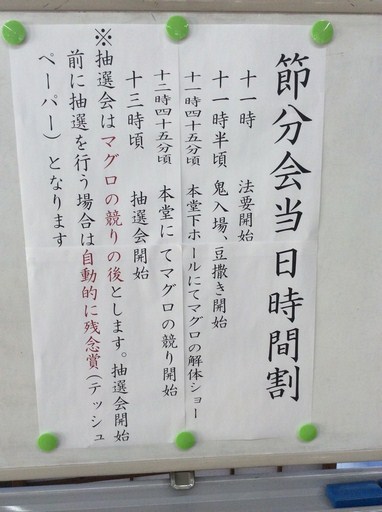 節分会当日時間割
十一時　法要開始
十一時半頃　鬼入場、豆撒き開始
十一時四十五分頃　本堂下ホールにてマグロの解体ショー
十二時四十五分頃　本堂にてマグロの競り開始
十三時頃　抽選会開始
※抽選会はマグロの競りの後とします。抽選会開始
前に抽選を行う場合は自動的に残念賞（テッシュ
ペーパー）となります